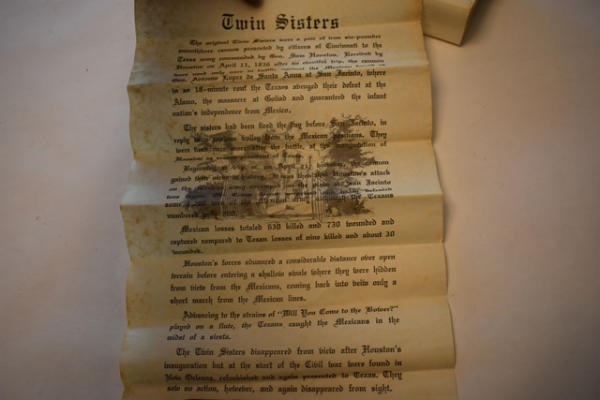 Twin Sisters
The original Twin Sisters were a pair of iron six-pounder
smoothbore cannon presented by citizens of Cincinnati to the
Texas army commanded by Gen. Sam Houston. Received by
Houston on April 11, 1836 after an eventful trip, the cannon
were used only once in battle against the Mexican
Gen. Antonio Lopez de Santa Anna at San Jacinto, where
in an 18-minute rout the Texans avenged their defeat at the
Alamo, the massacre at Goliad and guaranteed the infant
nation's independence from Mexico.
The sisters had been fired the day before San Jacinto, in
reply to a volley from the Mexican positions. They
were after the battle, at the of
Houston
Beginning April 21, the cannon
gained their Houston's attack
on the San Jacinto
some the Texans
numbered
Mexican losses totaled 630 killed and 730 wounded and
captured compared to Texan losses of nine killed and about 30
wounded.
Houston's forces advanced a considerable distance over open
terrain before entering a shallow swale where they were hidden
from view from the Mexicans, coming back into veiw only a
short march from the Mexican lines.
Advancing to the strains of "Will You Come to the Bower?"
played on a flute, the Texans caught the Mexicans in the
midst of a siesta.
The Twin Sisters disappeared from view after Houston's
inauguration but at the start of the Civil war were found in
New Orleans, refurbished and again presented to Texas. They
saw no action, however, and again disappeared from sight.